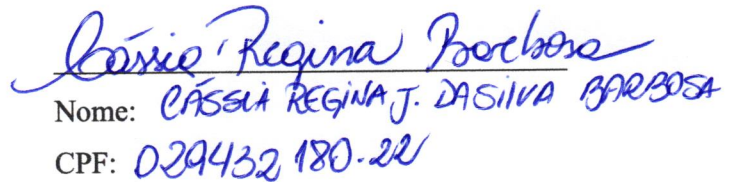 Cássia Regina Barbosa
Nome: CÁSSIA REGINA J. DA SILVA BARBOSA
CPF: 029432180-22